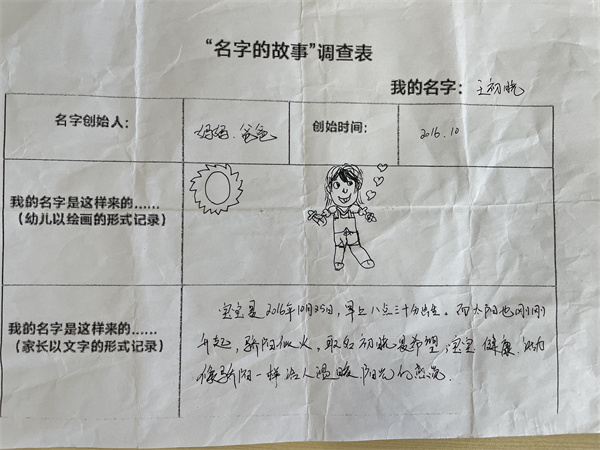 “名字的故事”调查表
我的名字：王初晓
名字创始人：
妈妈.爸爸
创始时间：
2016.10
我的名字是这样来的......
（幼儿以绘画的形式记录）
我的名字是这样来的......
（家长以文字的形式记录）
宝宝是2016年10月25日，早上八点三十分出生。而太阳也刚刚
升起，骄阳似火，取名初晓是希望宝宝健康.
像骄阳一样给人温暖.阳光的感觉.